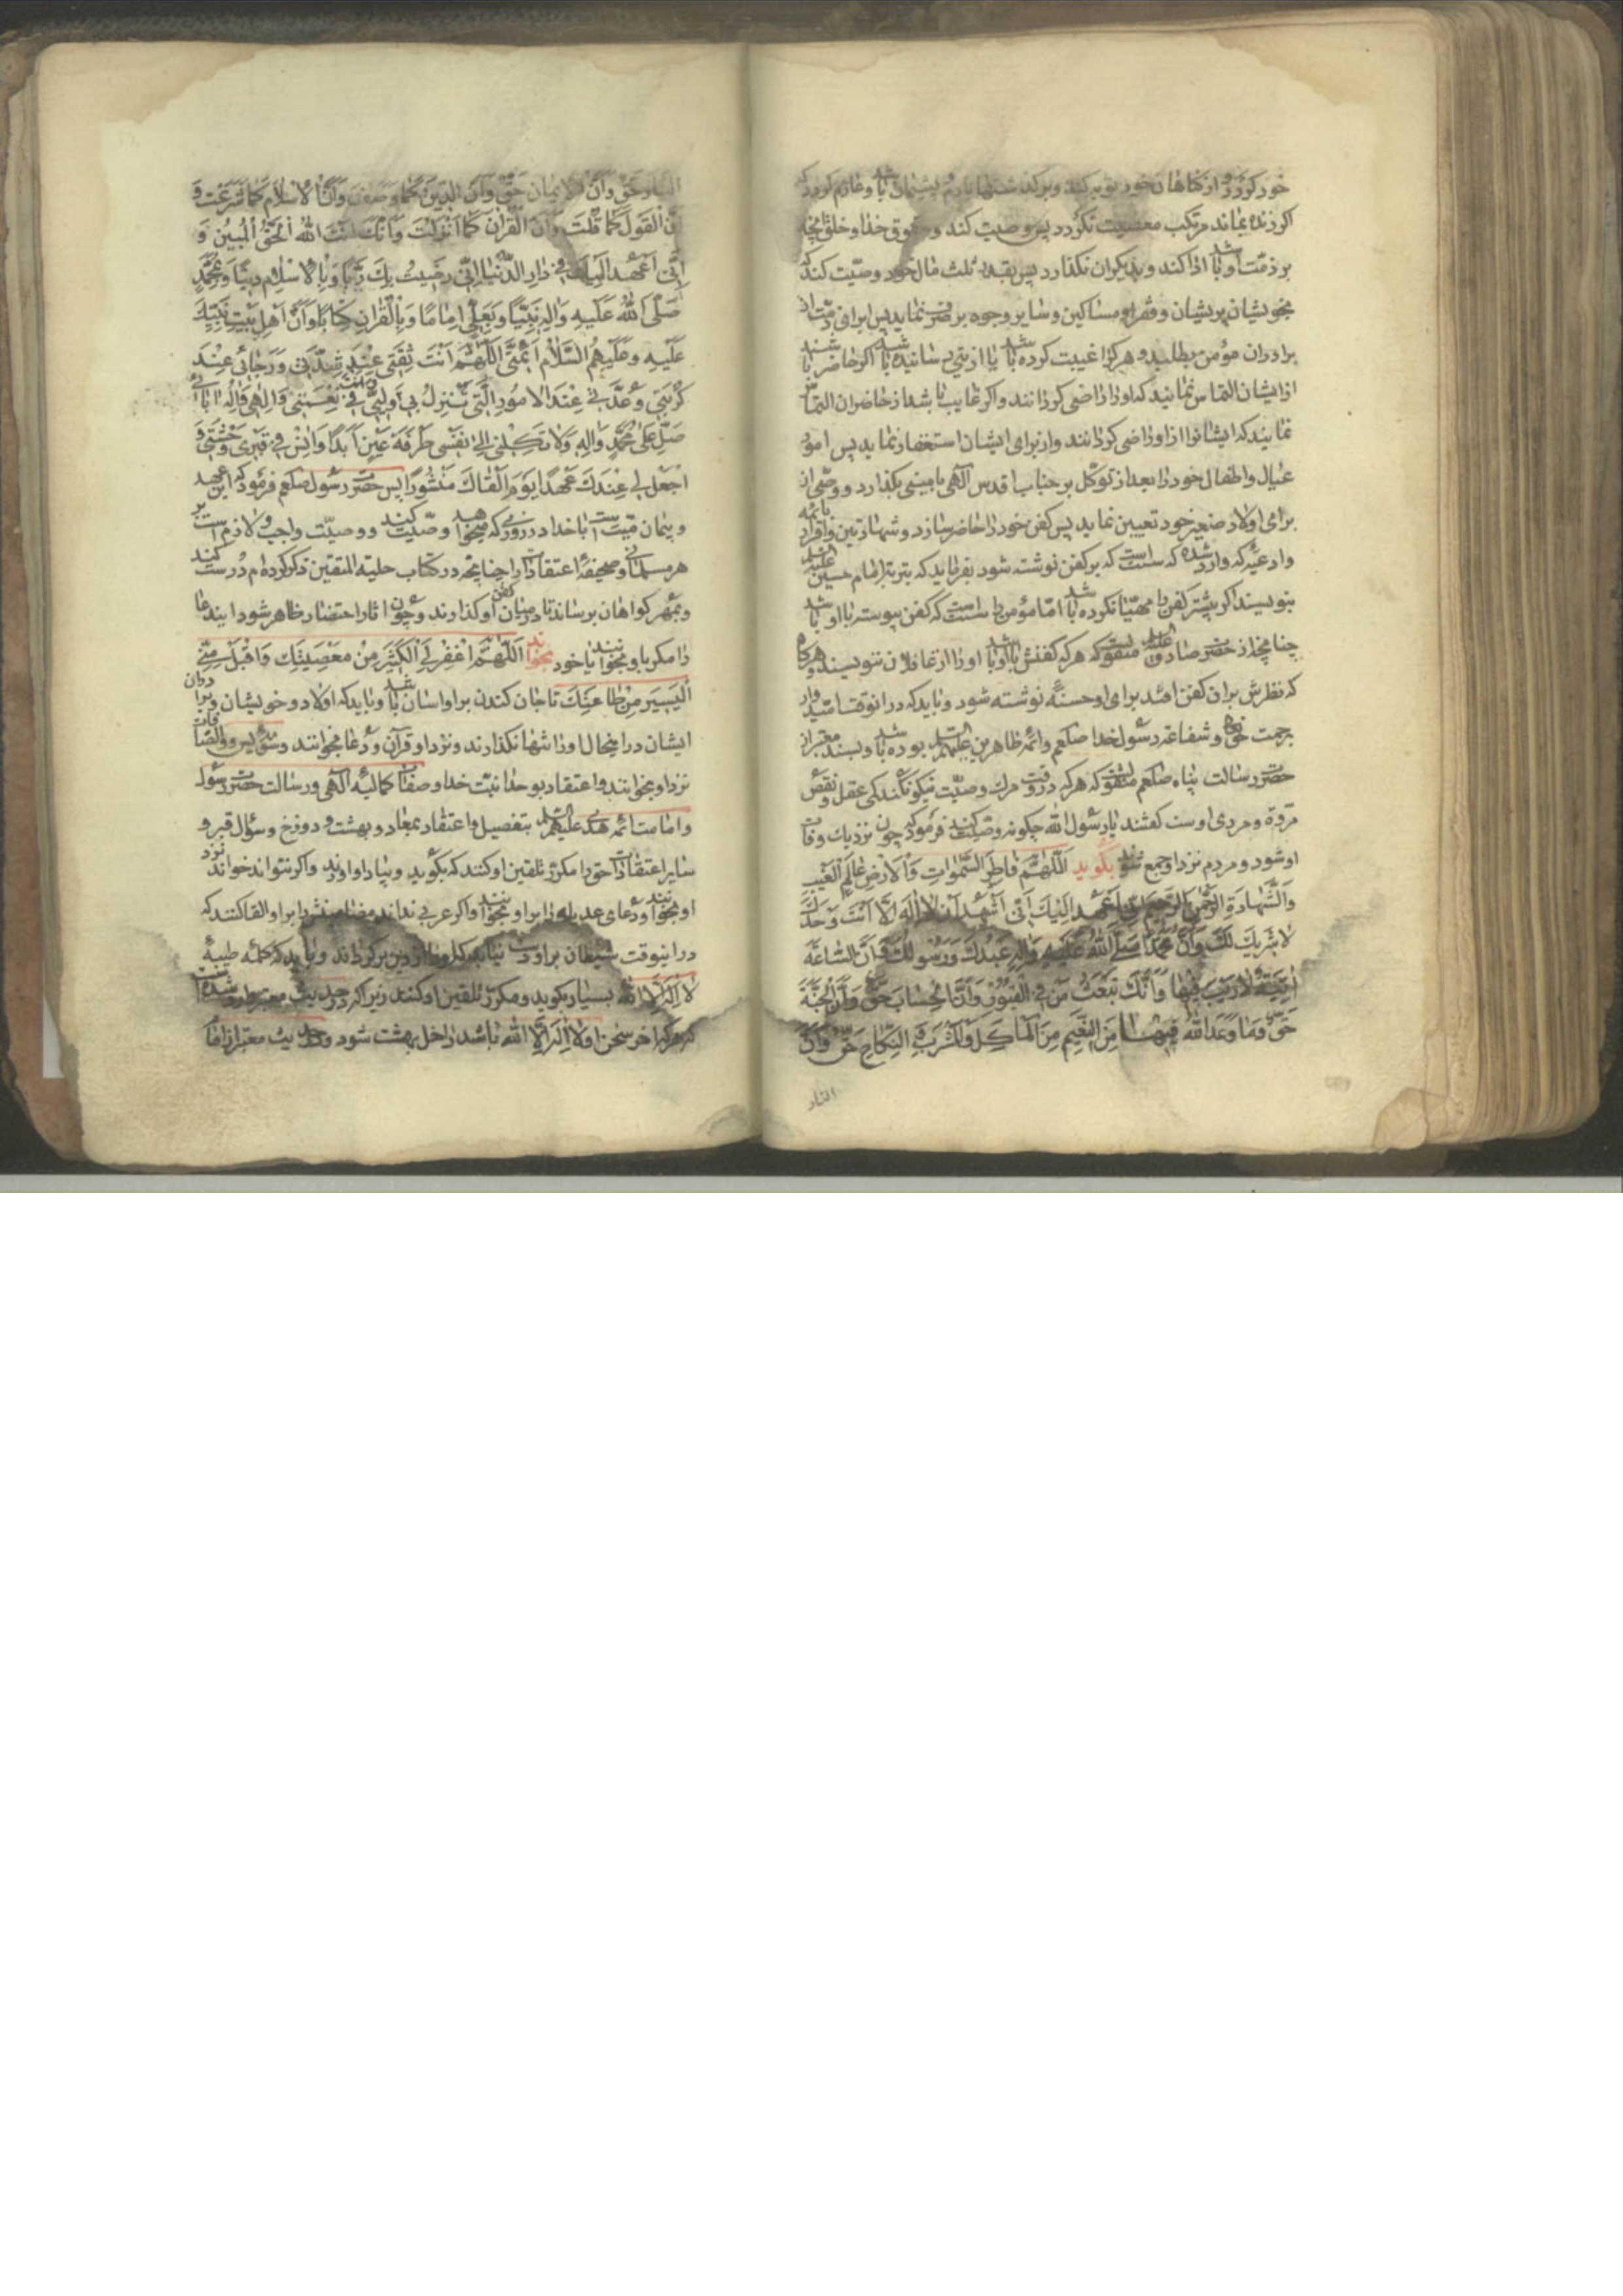 خود کردد و از کناهان خود توبه کند و بر کذشتها نادم و پشیمان باشد و عازم کردد که
اکر زنده بماند مرتکب معصیت نکردد پس وصیت کند و حقوق خدا و خلق آنچه
بر ذمت او باشد ادا کند و بدیکران نکذارد پس بقدر ثلث مال خود وصیت کند که
بخویشان پریشان و فقرا و مساکین و سایر وجوه بر صرف نماید پس ابراء ذمت از
برادران مؤمن بطلبد و هر کرا غیبت کرده باشد یا اذیتی رسانیده باشد اکر حاضر باشند
از ایشان التماس نمایند که او را راضی کردانند و اکر غایب باشد از حاضران التماس
نمایند که ایشانرا از او راضی کردانند و از برای ایشان استغفار نماید پس امور
عیال و اطفال خود را بعد از توکل بر جناب اقدس آلهی بامینی بکذارد و وصی از
برای اولاد صغیر خود تعیین نماید پس کفن خود را حاضر سازد و شهادتین و اقرار بائمه
و ادعیه که وارد شده که سنت است که بر کفن نوشته شود بفرماید که بتربة امام حسین علیه السلام
بنویسند اکر پیشتر کفن را مهیا نکرده باشد اما مؤمن را سنت است که کفن پیوسته با او باشد
چنانچه از حضرت صادق علیه السلام منقولست که هر که کفنش با او باشد او را از غافلان ننویسند و هر کاه
که نظرش بران کفن افتد برای او حسنه نوشته شود و باید که در انوقت امیدوار
برحمت خدا و شفاعة رسول خدا صلعم و ائمه طاهرین علیهم السلم بوده باشد و بسند معتبر از
حضرت رسالت پناه صلعم منقولست که هر که در وقت مرک وصیت نیکو نکند کمی عقل و نقص
مروة و مردی اوست کفتند یا رسول الله چکونه وصیت کنند فرمود که چون نزدیک وفات
او شود و مردم نزد او جمع شوند بکوید اللهم فاطر السموات والارض عالم الغیب
والشهادة الرحمن الرحیم انی اعهد الیک انی اشهد ان لا اله الا انت وحدک
لا شریک لک وان محمدا صلی الله علیه واله عبدک ورسولک وان الساعة
اتیة لا ریب فیها وانک تبعث من فی القبور وان الحساب حق وان الجنة
حق وما وعد الله فیها من النعیم من المأکل والمشرب والنکاح حق وان
النار
النار حق وان الایمان حق وان الدین کما وصفت وان الاسلام کما شرعت و
ان القول کما قلت وان القران کما انزلت وانک انت الله الحق المبین و
انی اعهد الیک فی دار الدنیا انی رضیت بک ربا وبالاسلام دینا وبمحمد
صلی الله علیه واله نبیا وبعلی اماما وبالقران کتابا وان اهل بیت نبیک
علیه وعلیهم السلام ائمتی اللهم انت ثقتی عند شدتی ورجائی عند
کربتی وعدتی عند الامور التی تنزل بی وانت ولیی فی نعمتی والهی واله ابائی
صل علی محمد واله ولا تکلنی الی نفسی طرفة عین ابدا وانس فی قبری وحشتی و
اجعل لی عندک عهدا یوم القاک منشورا پس حضرت رسول صلعم فرمود که این عهد
و پیمان میت است با خدا در روزی که میخواهد وصیت کند و وصیت واجب و لازم است بر
هر مسلمانی و صحیفه اعتقادات را چنانچه در کتاب حلیة المتقین ذکر کرده ام درست کنند
و بمهر کواهان برساند تا در میان کفن او کذارند و چون اثار احتضار ظاهر شود این دعا
را مکرر باو بخوانند یا خود بخواند اللهم اغفر لی الکثیر من معصیتک واقبل منی
الیسیر من طاعتک تا جان کندن بر او اسان باشد و باید که اولاد و خویشان و برادران
ایشان در اینحال او را تنها نکذارند و نزد او قرآن و دعا بخوانند و سوره یس و والصافات
نزد او بخوانند و اعتقاد بوحدانیت خدا و صفات کمالیه آلهی و رسالت حضرت رسول
و امامت ائمه هدی علیهم السلم بتفصیل و اعتقاد بمعاد و بهشت و دوزخ و سؤال قبر و
سایر اعتقادات حق را مکرر تلقین او کنند که بکوید و بیاد او اورند و اکر نتواند خواند نزد
او بخوانند و دعای عدیله را بر او بخوانند و اکر عربی نداند مضامینش را بر او القا کنند که
در اینوقت شیطان بر او دست نیابد که او را از دین برکرداند و باید که کلمه طیبه
لا اله الا الله بسیار بکوید و مکرر تلقین او کنند زیرا که در حدیث معتبر وارد شده است
که هر که اخر سخن او لا اله الا الله باشد داخل بهشت شود و حدیث معتبر از امام